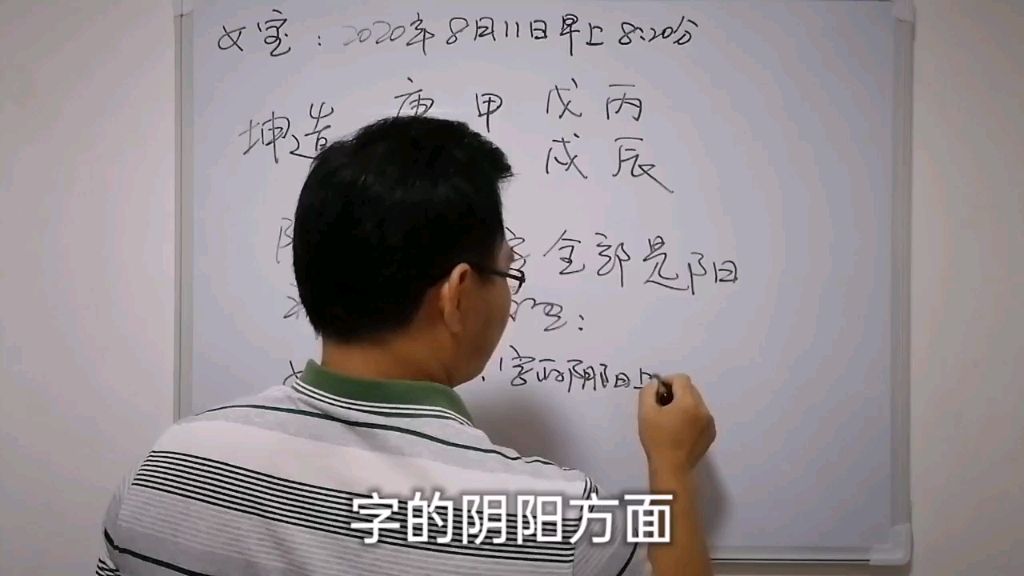 女宝：2020年8月11日早上8:20分
坤造 庚 甲 戊 丙
戌 辰
全部是阳
：
字的阴阳上
字的阴阳方面